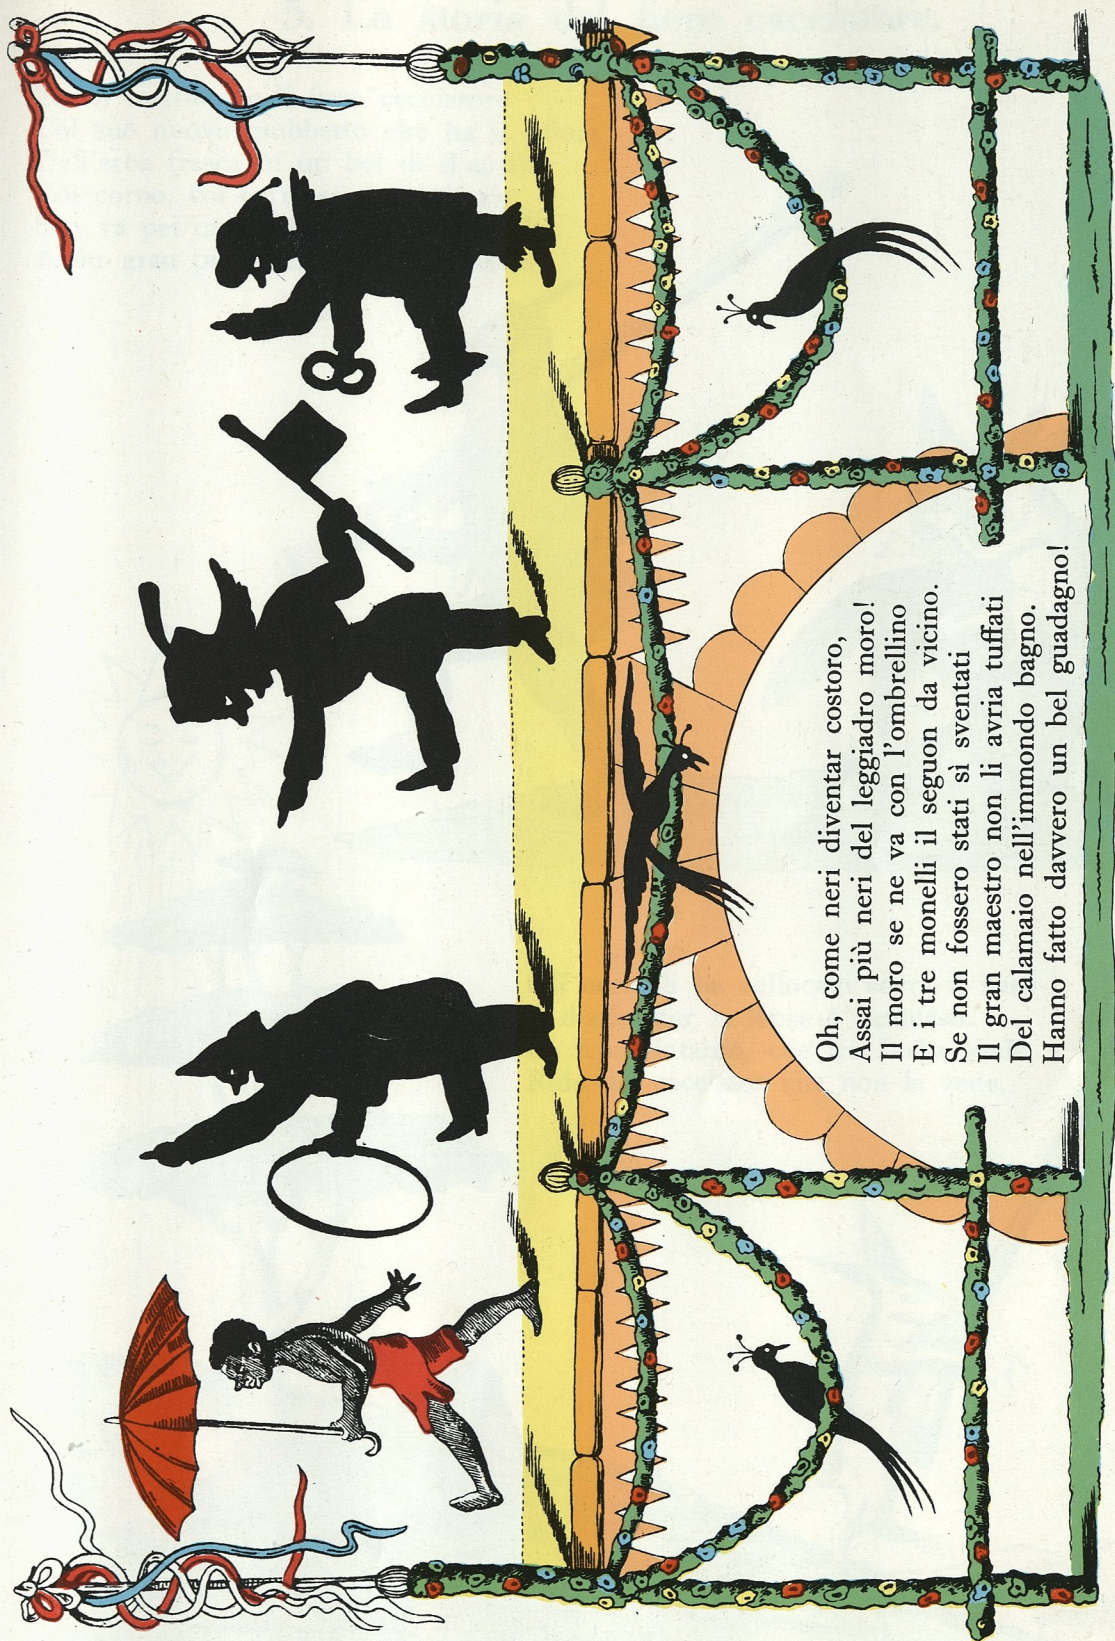 Oh, come neri diventar costoro,
Assai più neri del leggiadro moro!
Il moro se ne va con l'ombrellino
E i tre monelli il seguon da vicino.
Se non fossero stati sì sventati
Il gran maestro non li avria tuffati
Del calamaio nell'immondo bagno.
Hanno fatto davvero un bel guadagno!